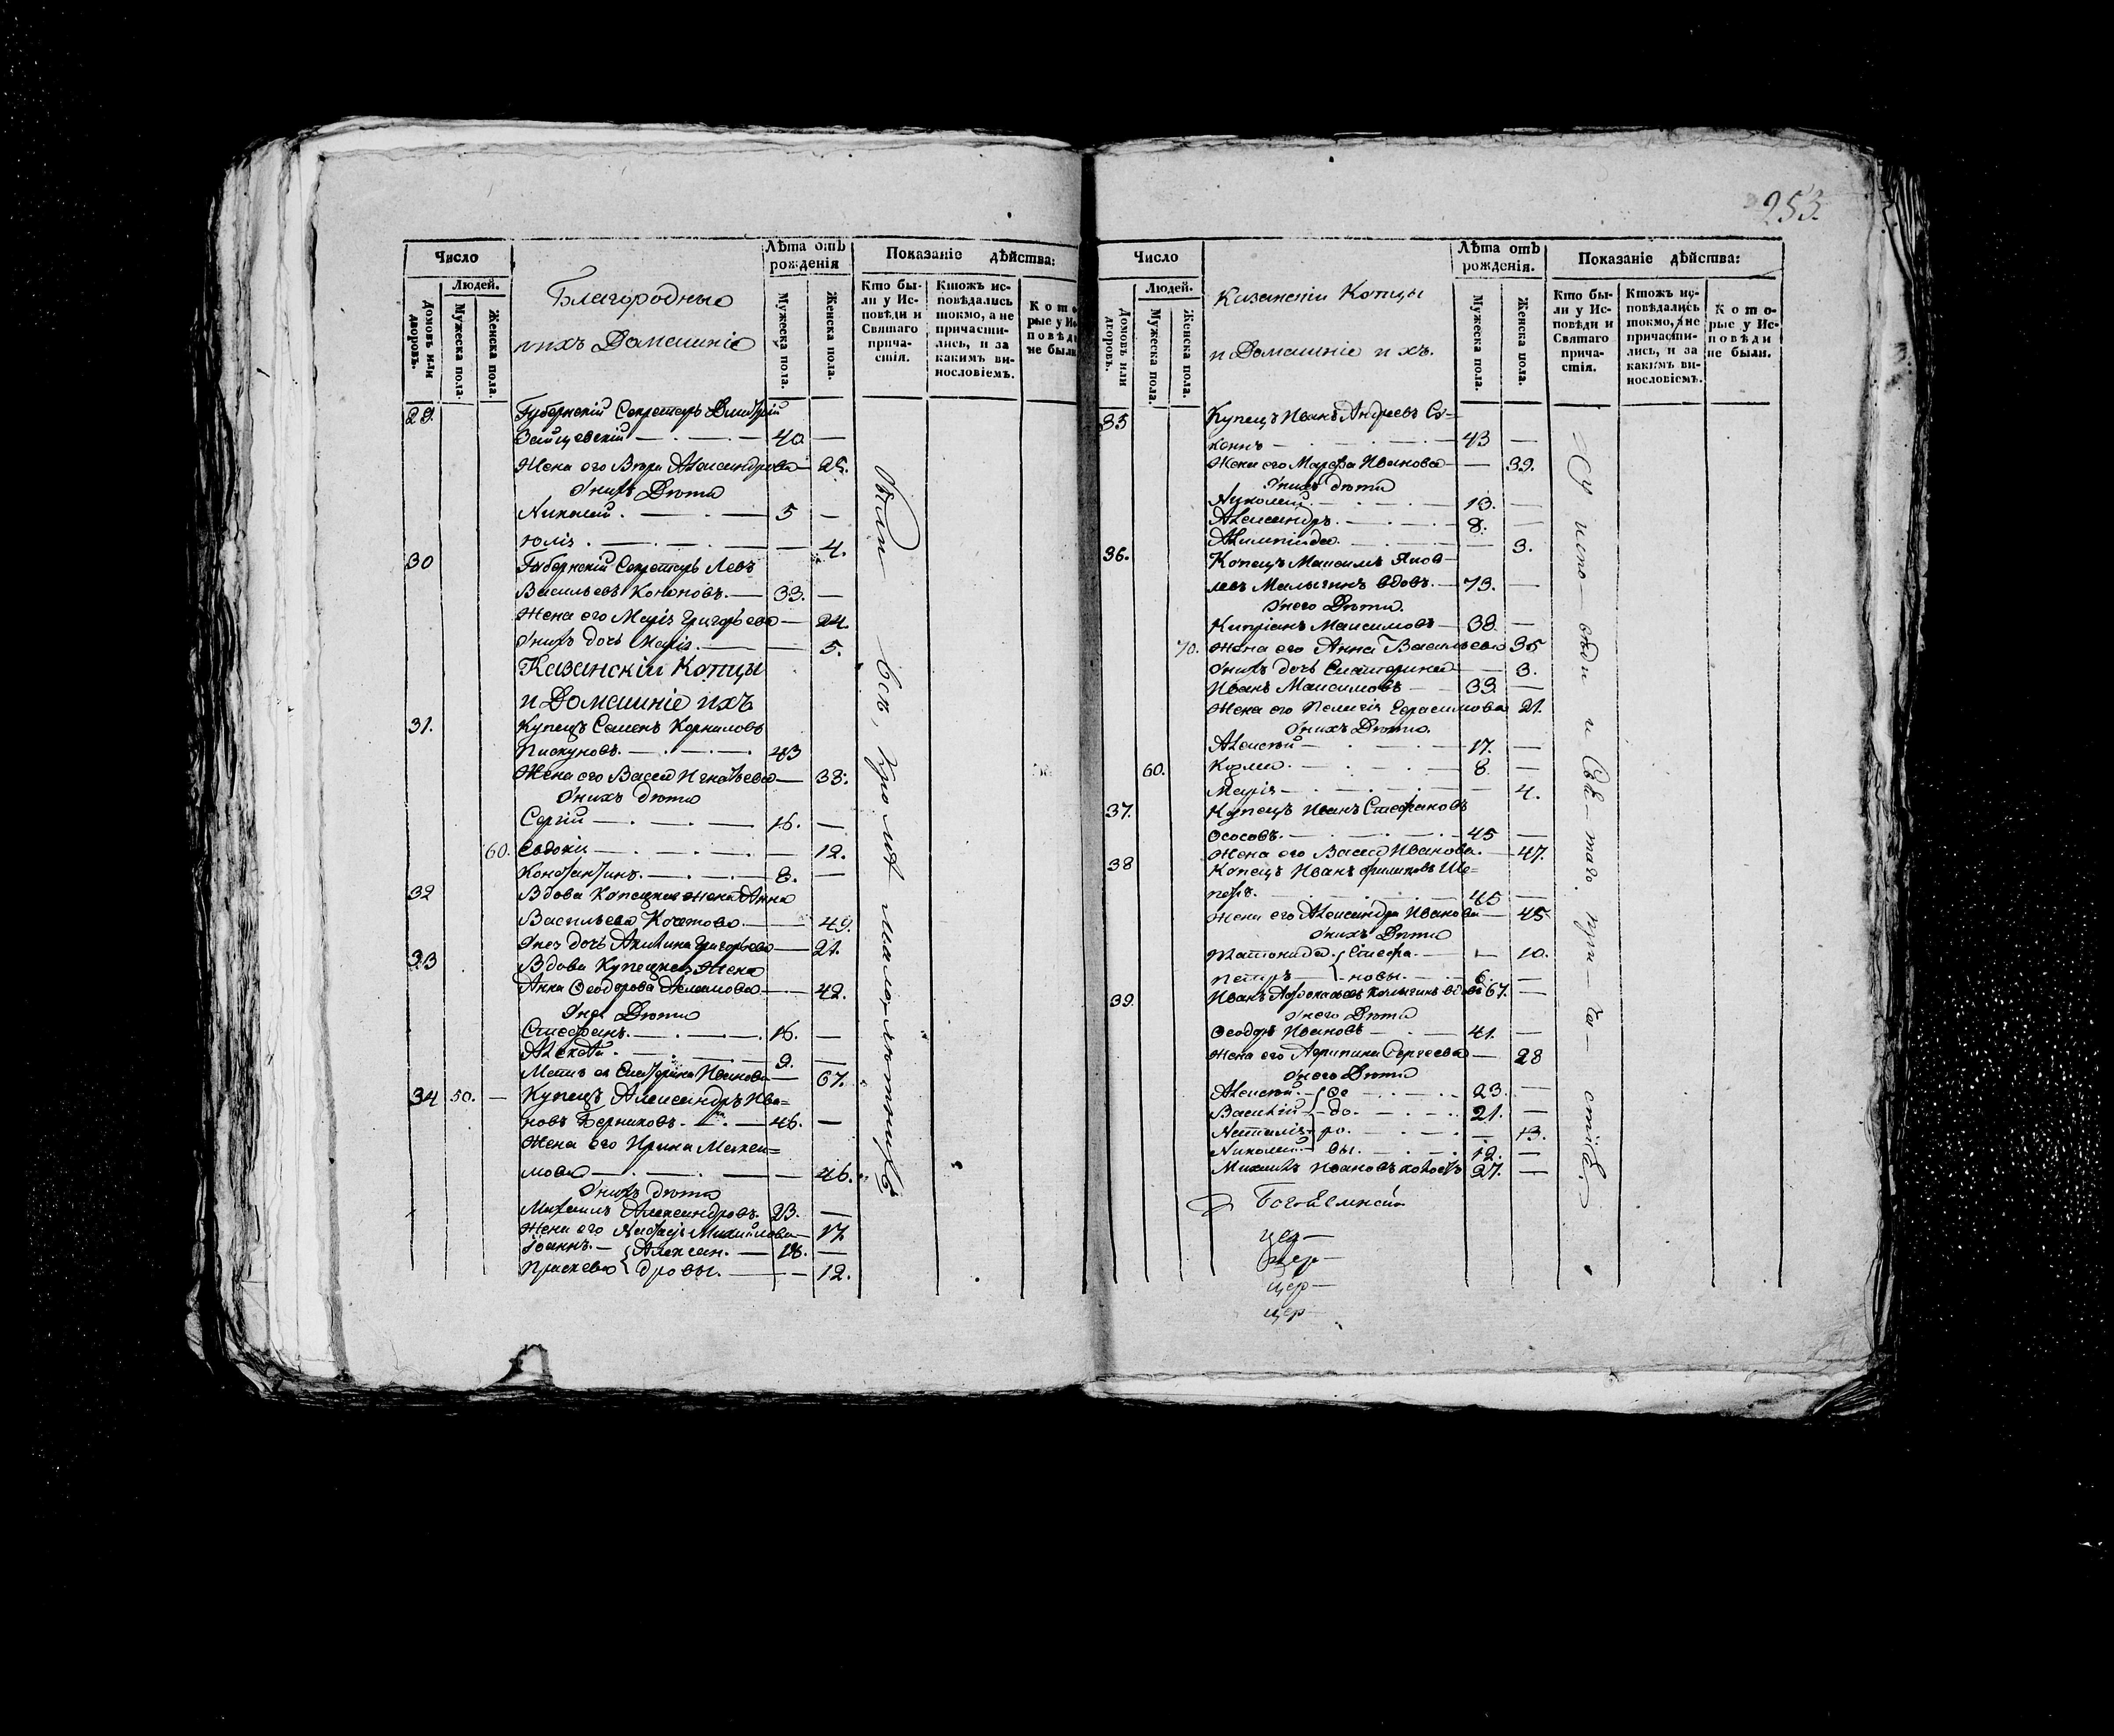 Число
Людей.
Домовъ или дворовъ.
Мужеска пола.
Женска пола.
Благородныо
и ихъ Домашнiе
Лѣта отъ рожденiя
Мужеска пола.
Женска пола.
Показанiе дѣйства:
Кто бы-
ли у Ис-
повѣди и
Святаго
прича-
стiя.
Ктожъ ис-
повѣдались
токмо, а не
причасти-
лись, и за
какимъ ви-
нословiемъ.
Кото
рые у Ис
повѣд
не были
29. Губернскiй Секретарь Дмитрiй
Зайцевскiй 40 —
Жена его Вѣра Александрова
У нихъ Дѣти
Николай 5 —
Юлiя — 4.
30 Губернскiй Секретарь Левъ
Васильевъ Кононовъ. 33. —
Жена его Марiя Григорьева — 24.
У нихъ дочь Марiя — 5.
Казанскiи Копцы
и Домашнiе ихъ
31. Купецъ Семенъ Корниловъ
Пискуновъ. 43
Жена его Васса Игнатьева — 38.
У нихъ дѣти
Сергiй 16. —
60. Евдокiя — 12.
Константинъ. 8. —
32 Вдова Копецкая жена Анна
Васильева — 49.
У нея дочь Акилина Григорьева — 21.
33 Вдова Купецкая Жена
Анна Ѳеодорова — 42.
У нея Дѣти
Стефанъ. 16. —
Алексѣй. 9. —
Мать ея Екатерина Иванова — 67.
34 50. — Купецъ Александръ Ива=
новъ Берниковъ. 46. —
Жена его Ирина Макси=
мова — 46.
У нихъ дѣти
Михаилъ Александровъ. 23. —
Жена его Настасья Михайлова — 17.
Iоаннъ. — { Алексан. — 18. —
Прасковья { дровы. — 12.
Были всѣ, кромѣ малолѣтнихъ
253.
Число
Людей.
Домовъ или дворовъ.
Мужеска пола.
Женска пола.
Казанскiи Копцы
и Домашнiе ихъ.
Лѣта отъ рожденiя.
Мужеска пола.
Женска пола.
Показанiе дѣйства:
Кто бы-
ли у Ис-
повѣди и
Святаго
прича-
стiя.
Ктожъ ис-
повѣдались
токмо, а не
причасти-
лись, и за
какимъ ви-
нословiемъ.
Кото-
рые у Ис-
повѣди
не были.
35 Купецъ Иванъ Андреевъ Со-
кинъ 43 —
Жена его Марѳа Иванова — 39.
У нихъ дѣти
Николай 13. —
Александръ. 8. —
Алимпiада. — 3.
36. Копецъ Максимъ Яков-
левъ Малыгинъ вдовъ. 73. —
У него Дѣти.
Кипрiанъ Максимовъ 38. —
70. Жена его Анна Васильева 35
У нихъ дочь Екатерина — 3.
Иванъ Максимовъ 33. —
Жена его Пелагiя Герасимова 21.
У нихъ Дѣти.
Алексѣй 17. —
60. Козма. 8. —
Марiя — 4.
37. Купецъ Иванъ Стефановъ
Ососовъ. 45 —
Жена его Васса Иванова. — 47.
38 Копецъ Иванъ Филиповъ Ше=
45 —
Жена его Александра Иванова — 45
У нихъ Дѣти
{ Стефа. — 10.
Петръ { новы. 6. —
39. Иванъ вдовъ 67. —
У него Дѣти
Ѳеодоръ Ивановъ 41. —
Жена его Агрипина Сергеева — 28
У него Дѣти
Алексѣй. { Ѳе 23. —
Василiй { до. 21. —
Наталiя { ро. — 13.
Николай { вы. 12. —
Михаилъ Ивановъ 27. —
Богоявленской
цер—
цер—
цер—
цер—
У испо—вѣди и Свя—таго при—ча—стiя.